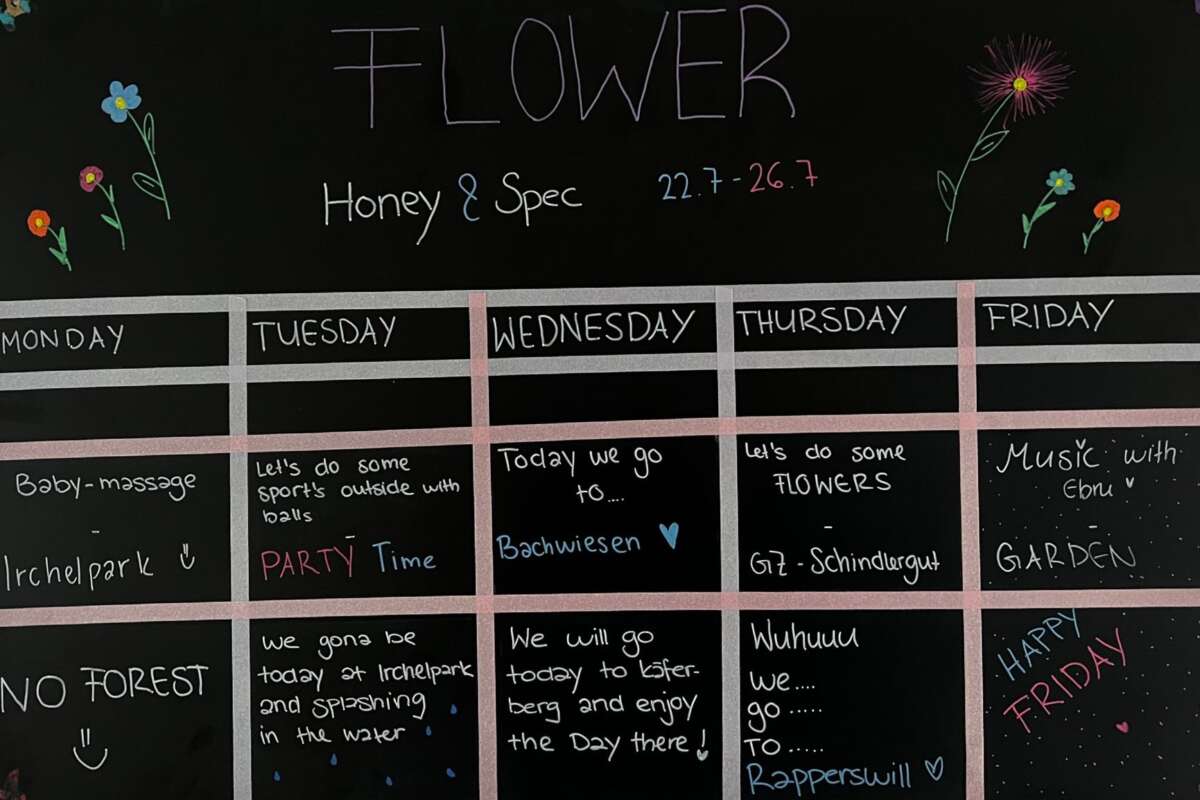 FLOWER
Honey & Spec 22.7-26.7
MONDAY
TUESDAY
WEDNESDAY
THURSDAY
FRIDAY
Baby-massage
-
Irchelpark
Let's do some
sport's outside with
balls
-
PARTY Time
Today we go
to....
Bachwiesen
Let's do some
FLOWERS
-
GZ-Schindlergut
Music with
Ebru
-
GARDEN
NO FOREST
we gona be
today at Irchelpark
and splashing
in the water
We will go
today to käfer-
berg and enjoy
the Day there!
Wuhuuu
we....
go.....
TO.....
Rapperswill
HAPPY
FRIDAY